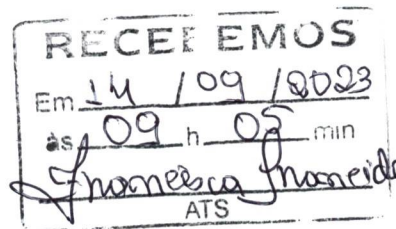 RECEBEMOS
Em 14 / 09 / 2023
às 09 h 05 min
Francisca
ATS